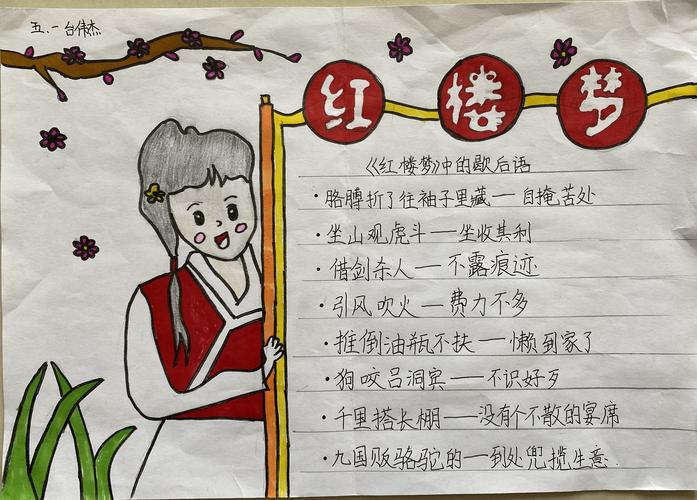 五.一 台伟杰
红楼梦
《红楼梦》中的歇后语
·胳膊折了往袖子里藏——自掩苦处
·坐山观虎斗——坐收其利
·借剑杀人——不露痕迹
·引风吹火——费力不多
·推倒油瓶不扶——懒到家了
·狗咬吕洞宾——不识好歹
·千里搭长棚——没有个不散的宴席
·九国贩骆驼的——到处兜揽生意.